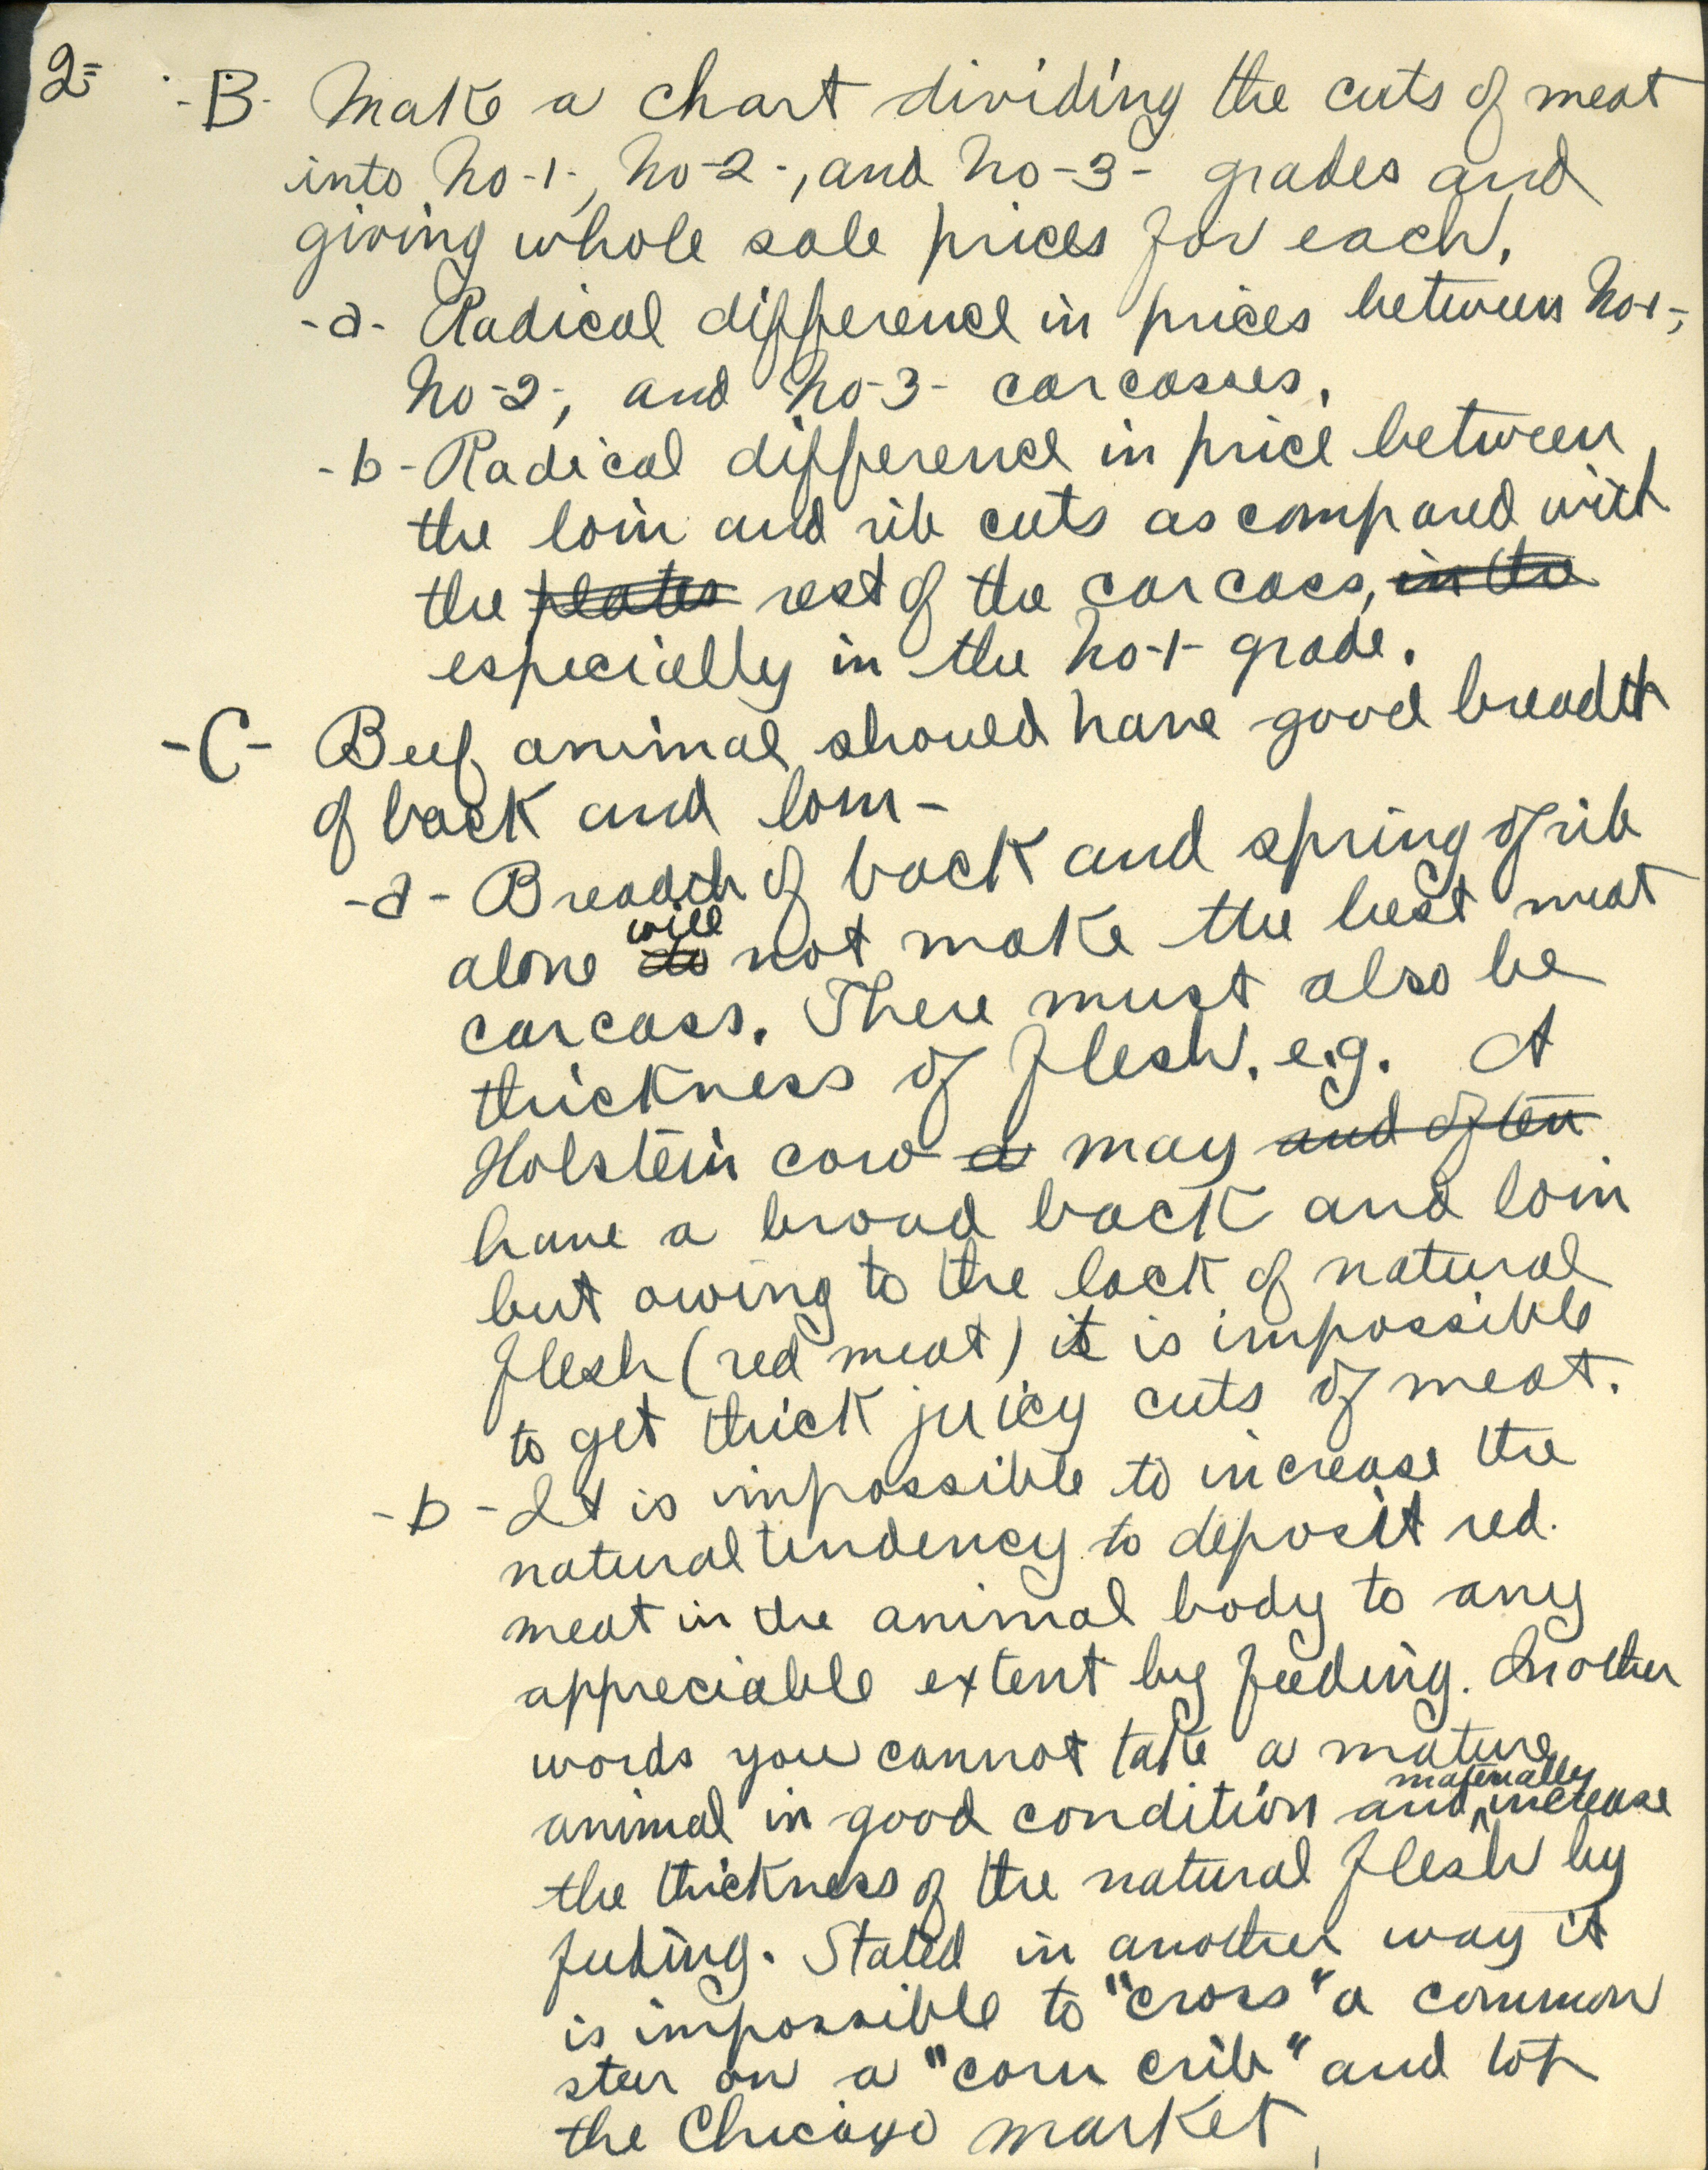 2= -B- Make a chart dividing the cuts of meat
into No-1-, No-2-, and No-3- grades and
giving whole sale prices for each.
-a- Radical difference in prices between No-1-,
No-2-, and No-3- carcasses.
-b- Radical difference in price between
the loin and rib cuts as compared with
the plates rest of the carcass, in the
especially in the No-1- grade.
-C- Beef animal should have good breadth
of back and loin-
-a- Breadth of back and spring of rib
will
alone do not make the best meat
carcass. There must also be
thickness of flesh. e.g. A
Holstein cow a may and often
have a broad back and loin
but owing to the lack of natural
flesh (red meat) it is impossible
to get thick juicy cuts of meat.
-b- It is impossible to increase the
natural tendency to deposit red
meat in the animal body to any
appreciable extent by feeding. In other
words you cannot take a mature
materially
animal in good condition and increase
the thickness of the natural flesh by
feeding. Stated in another way it
is impossible to "cross" a common
steer on a "corn crib" and top
the Chicago market.